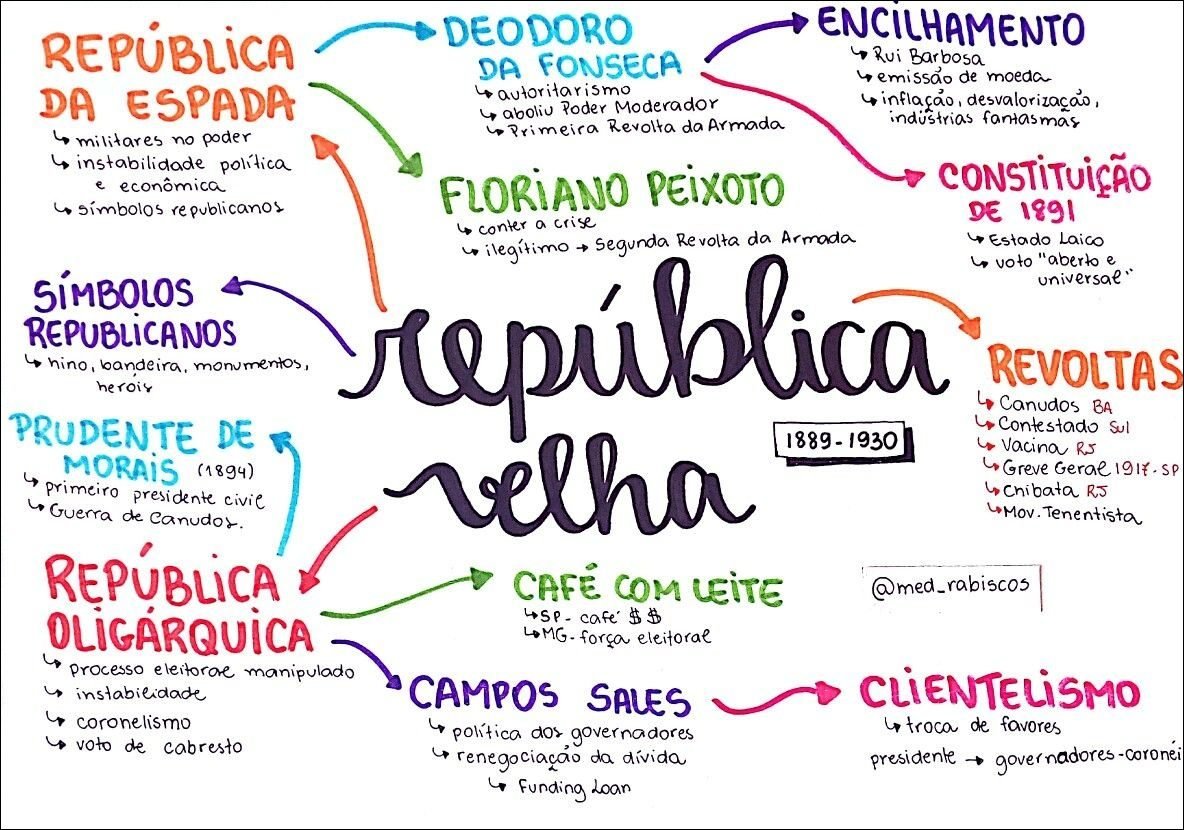 REPÚBLICA
DA ESPADA
↳ militares no poder
↳ instabilidade política
e econômica
↳ símbolos republicanos
DEODORO
DA FONSECA
↳ autoritarismo
↳ aboliu Poder Moderador
↳ Primeira Revolta da Armada
ENCILHAMENTO
↳ Rui Barbosa
↳ emissão de moeda
↳ inflação, desvalorização,
indústrias fantasmas
FLORIANO PEIXOTO
↳ conter a crise
↳ ilegítimo → Segunda Revolta da Armada
CONSTITUIÇÃO
DE 1891
↳ Estado Laico
↳ voto "aberto e
universal"
SÍMBOLOS
REPUBLICANOS
↳ hino, bandeira, monumentos,
heróis
república
velha
1889-1930
REVOLTAS
↳ Canudos BA
↳ Contestado Sul
↳ Vacina RJ
↳ Greve Geral 1917-SP
↳ Chibata RJ
↳ Mov. Tenentista
PRUDENTE DE
MORAIS (1894)
↳ primeiro presidente civil
↳ Guerra de Canudos.
REPÚBLICA
OLIGÁRQUICA
↳ processo eleitoral manipulado
↳ instabilidade
↳ coronelismo
↳ voto de cabresto
CAFÉ COM LEITE
↳ SP- café $ $
↳ MG- força eleitoral
@med_rabiscos
CAMPOS SALES
↳ política dos governadores
↳ renegociação da dívida
↳ Funding Loan
CLIENTELISMO
↳ troca de favores
presidente → governadores-coronéi